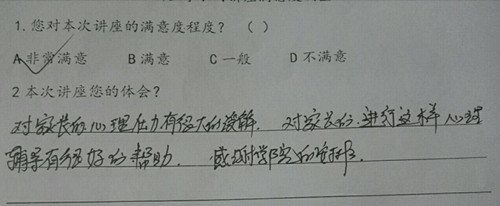 1.您对本次讲座的满意度程度？（ ）
A非常满意 B满意 C一般 D不满意
2本次讲座您的体会？
对家长的心理压力有很大的缓解. 对家长的.进行这样心理
辅导有很好的帮助. 感谢学院的安排.